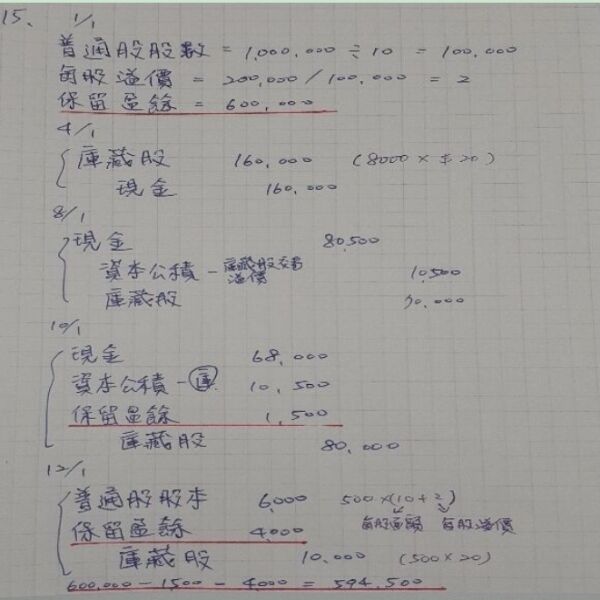 15. 1/1
普通股股數 = 1,000,000 ÷ 10 = 100,000
每股溢價 = 200,000 / 100,000 = 2
保留盈餘 = 600,000
4/1
庫藏股 160,000 (8000 × $20)
現金 160,000
8/1
現金 80,500
資本公積 - 庫藏股交易溢價 10,500
庫藏股 70,000
10/1
現金 68,000
資本公積 - 庫 10,500
保留盈餘 1,500
庫藏股 80,000
12/1
普通股股本 6,000 500 × (10 + 2)
每股面額 每股溢價
保留盈餘 4,000
庫藏股 10,000 (500 × 20)
600,000 - 1500 - 4000 = 594,500